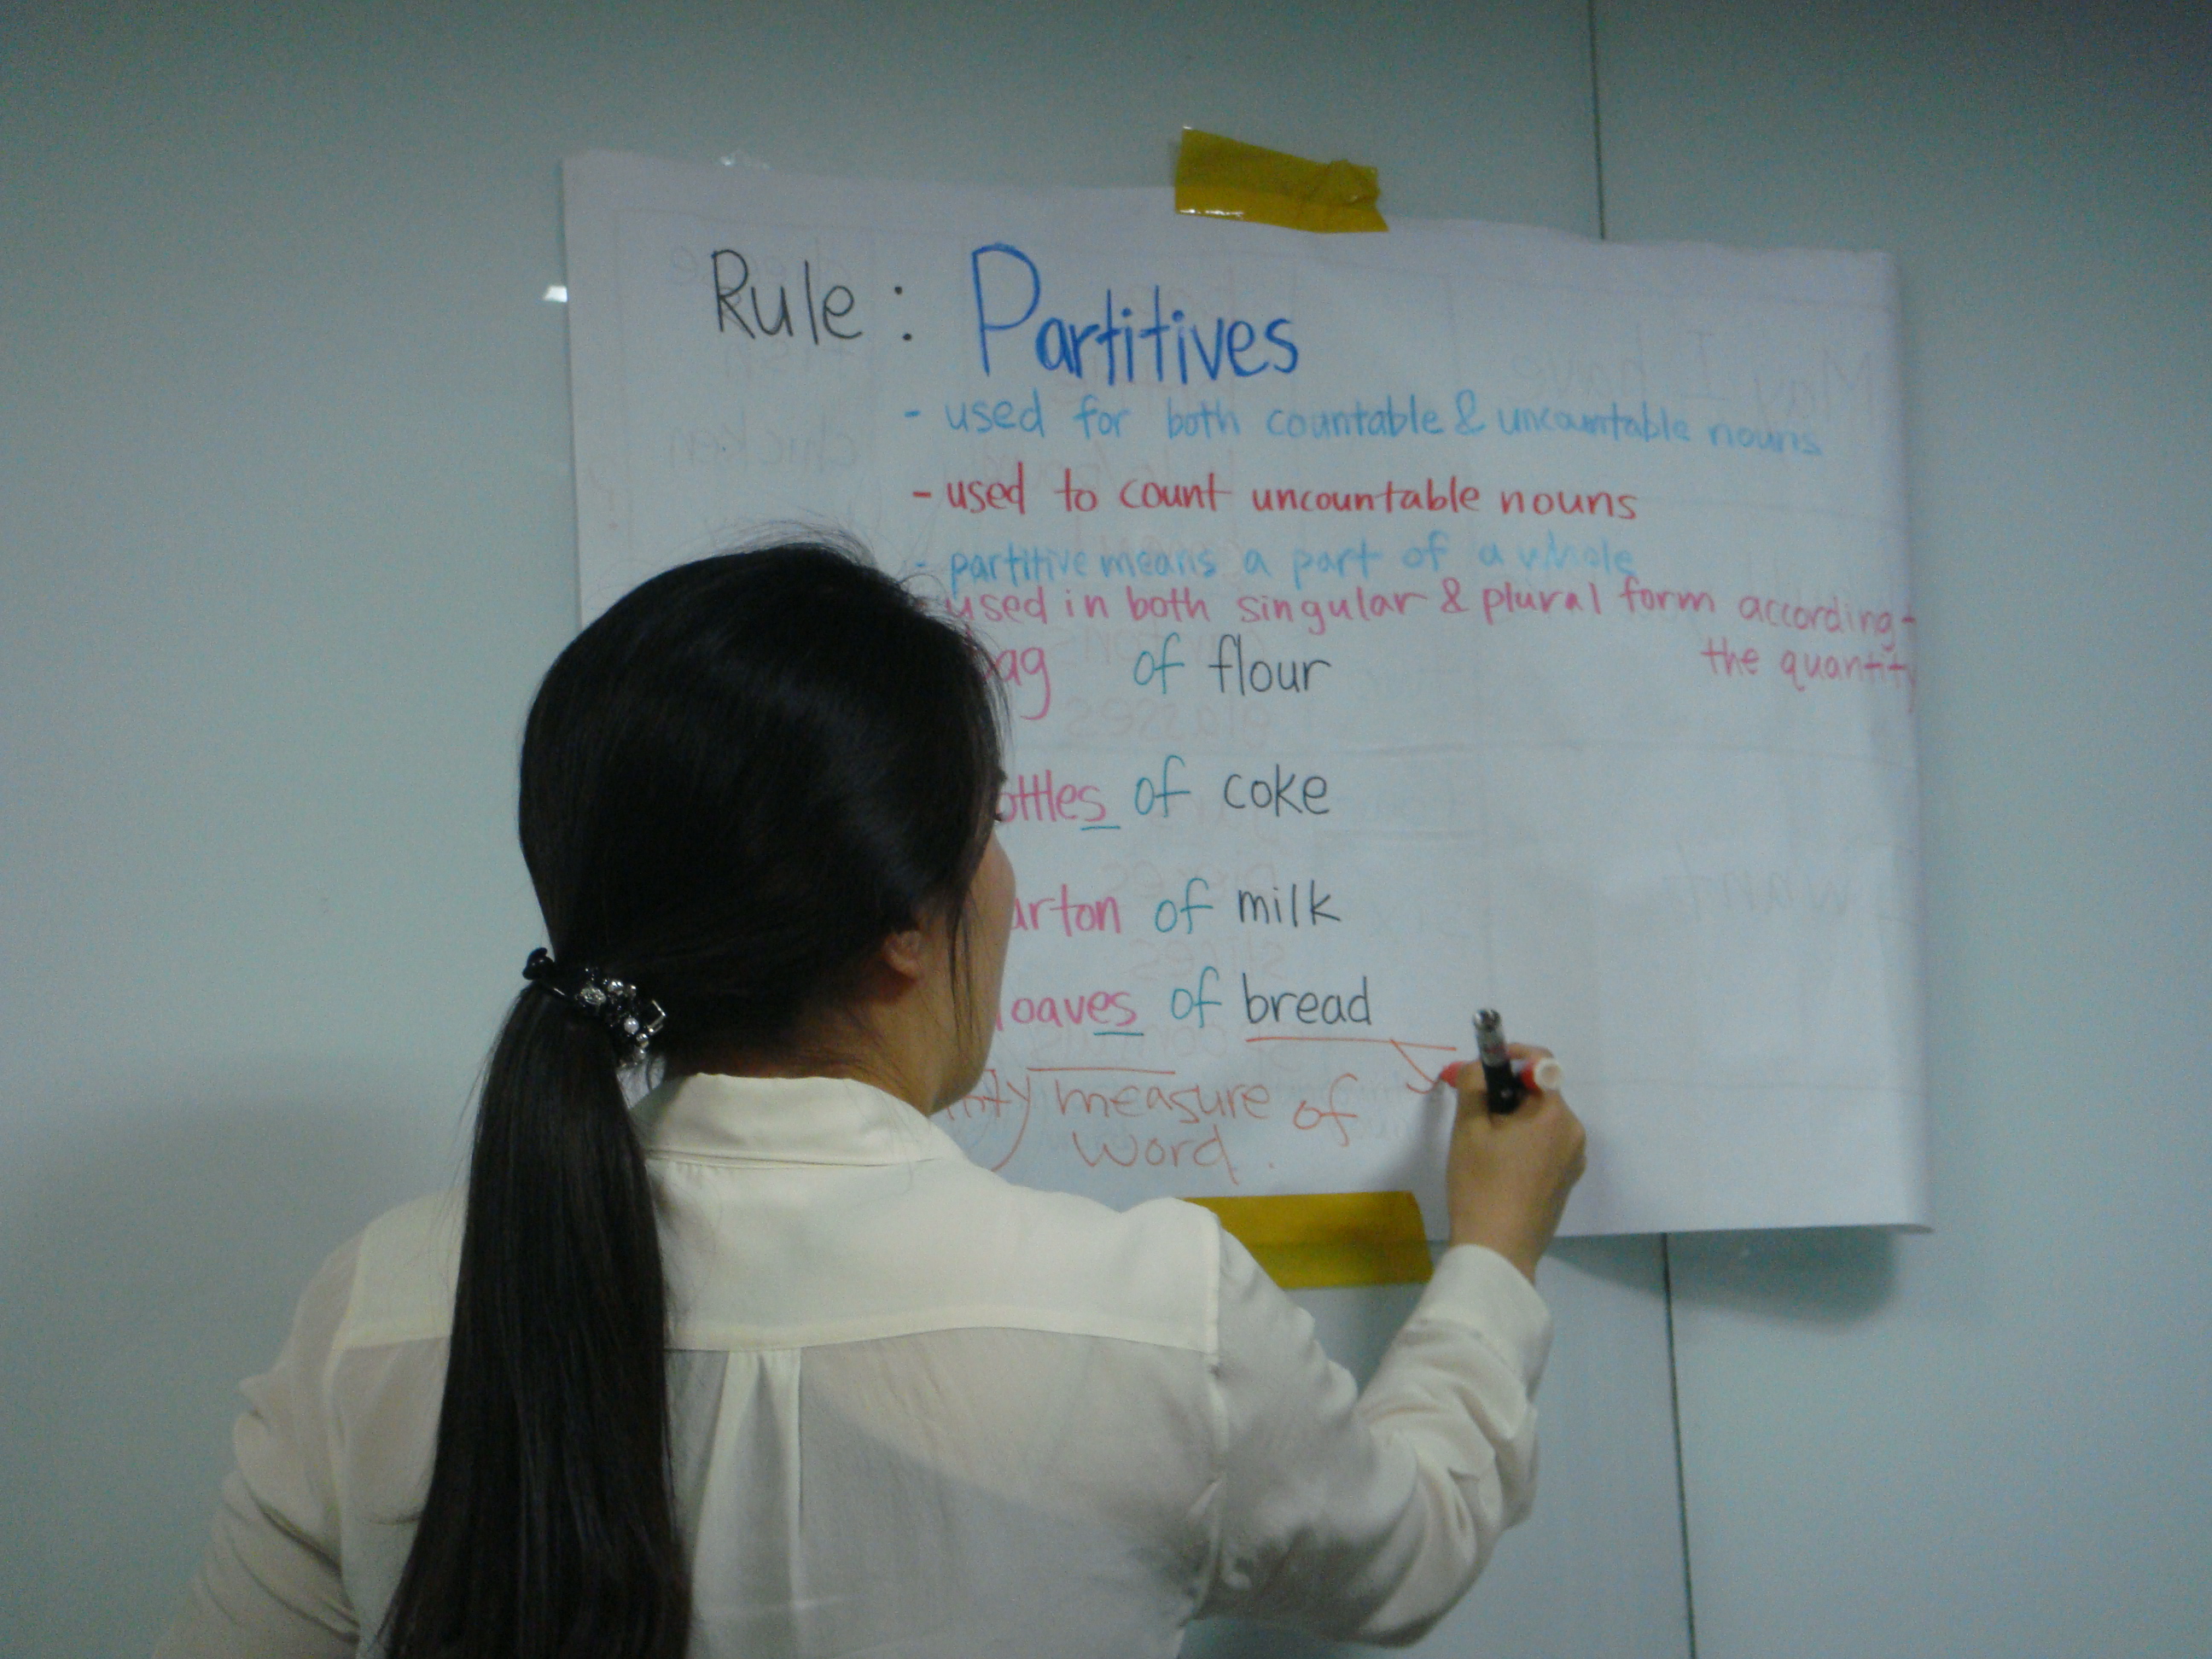 Rule : Partitives
- used for both countable & uncountable nouns
- used to count uncountable nouns
- partitive means a part of a whole
used in both singular & plural form according-
the quantity
ag of flour
ottles of coke
arton of milk
loaves of bread
measure of
word.